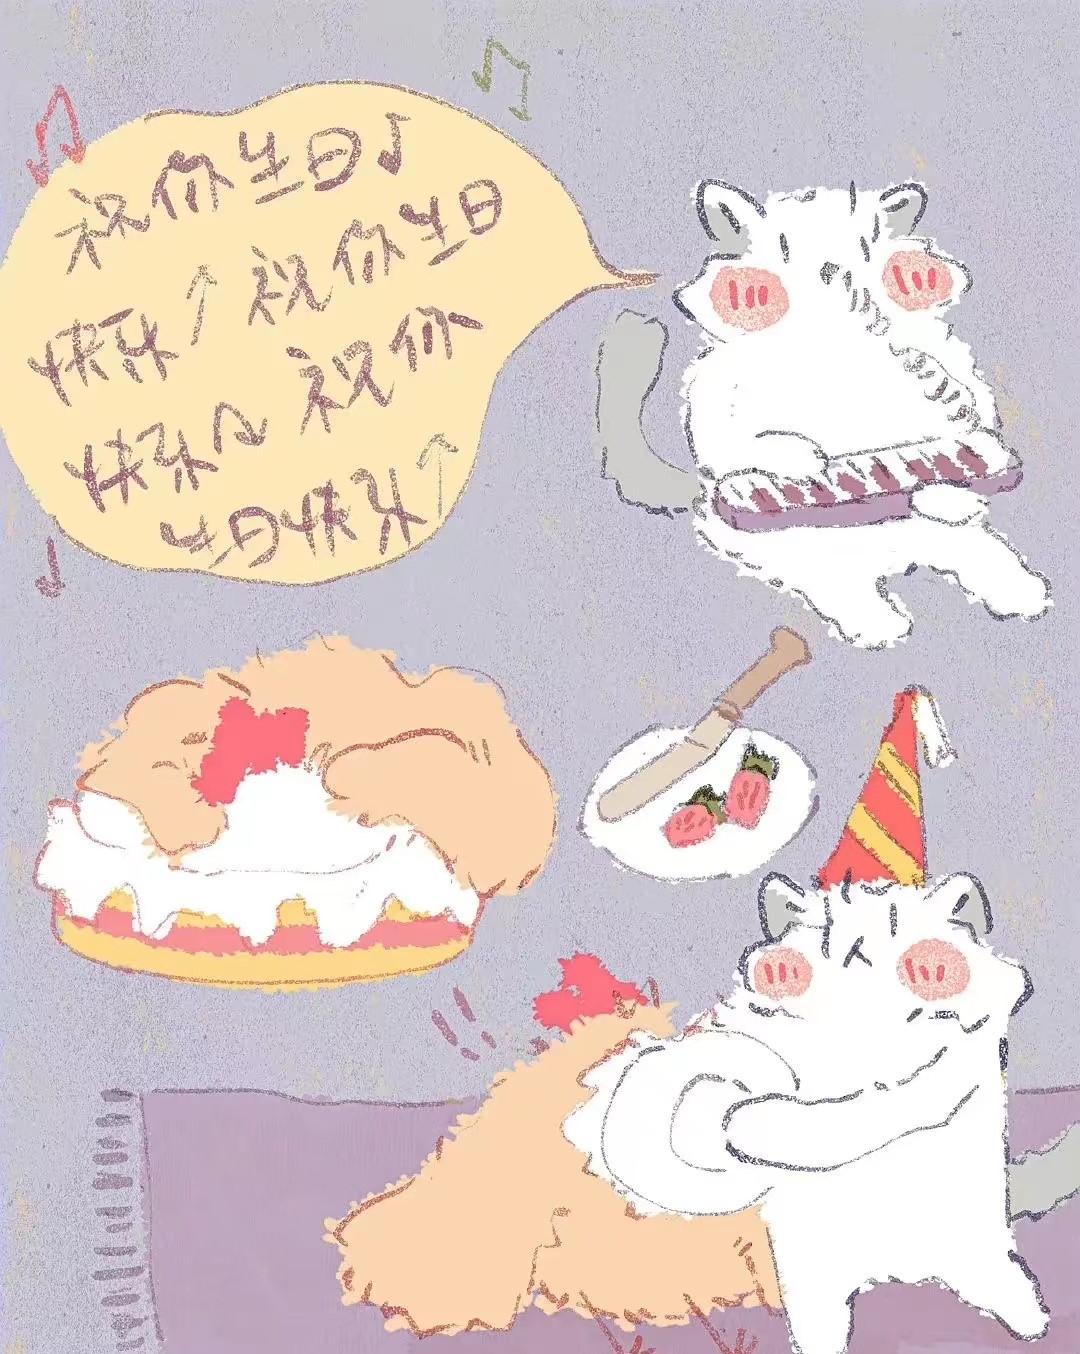 祝你生日♪
快乐↑祝你生日
快乐↷祝你
生日快乐↑